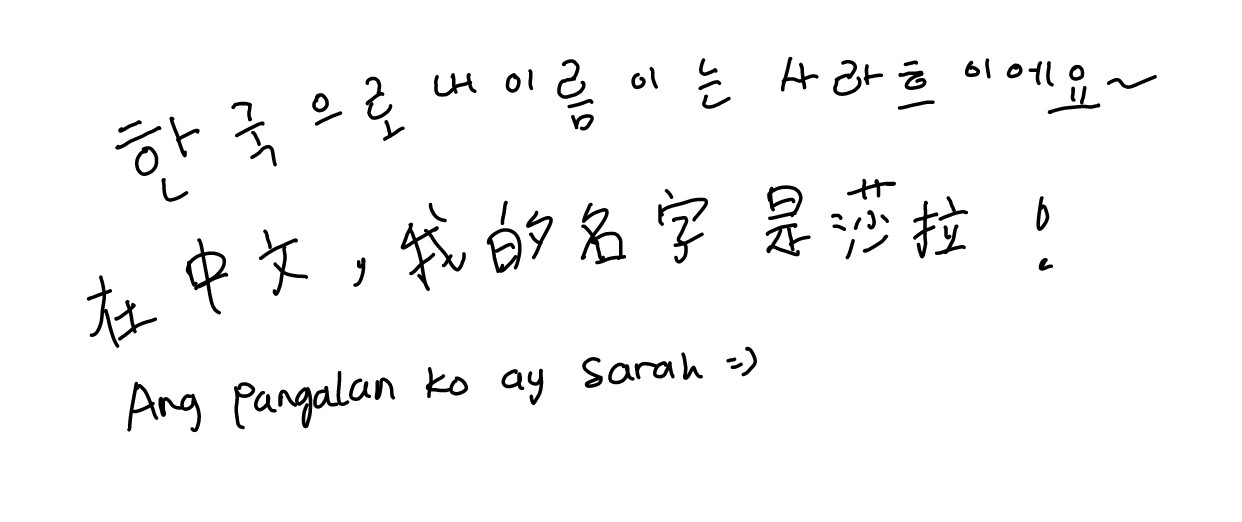 한국으로 내 이름 이 는 사라흐 이에요~
在中文，我的名字是莎拉！
Ang pangalan ko ay Sarah =)